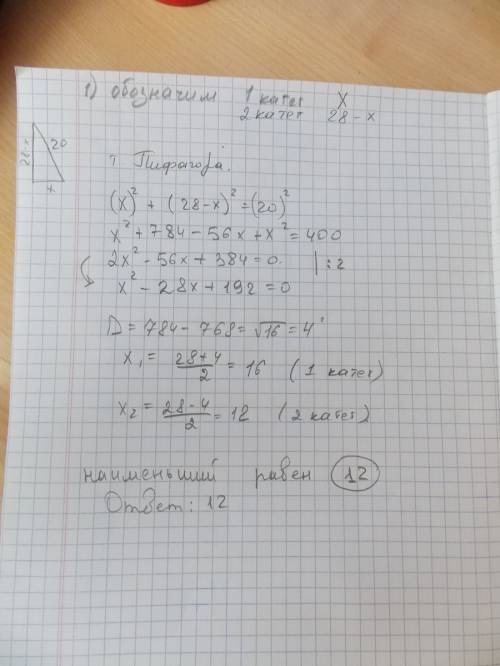 1) обозначим 1 катет X
2 катет 28-x
28-x
20
x
т Пифагора.
(x)² + (28-x)² = (20)²
x² + 784 - 56x + x² = 400
2x² - 56x + 384 = 0. | : 2
x² - 28x + 192 = 0
D = 784 - 768 = √16 = 4
x₁ = \frac{28+4}{2} = 16 (1 катет)
x₂ = \frac{28-4}{2} = 12 (2 катет)
наименьший равен 12
Ответ: 12